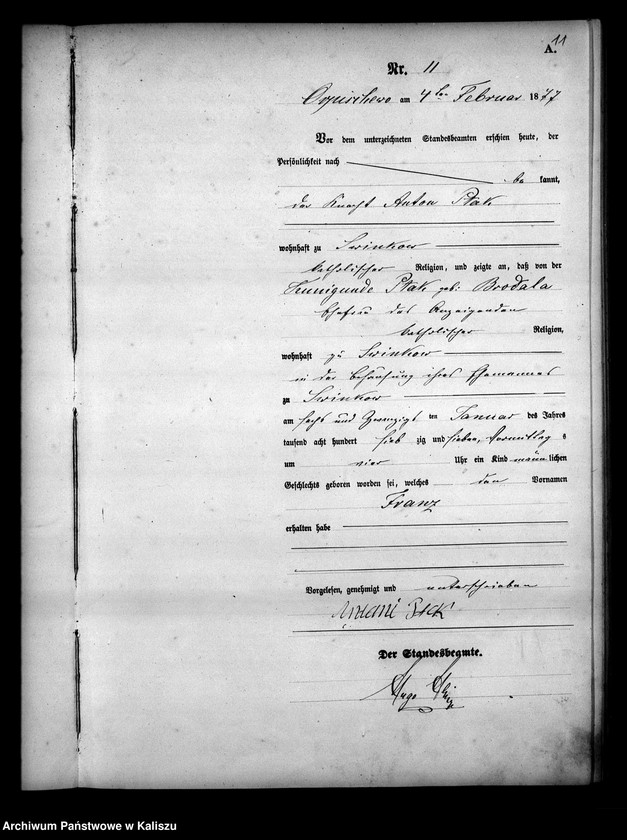 11
A.
Nr. 11
am 4ten Februar 1877
Vor dem unterzeichneten Standesbeamten erschien heute, der
Persönlichkeit nach
be kannt,
der Knecht Anton Ptak
wohnhaft zu Swinkow
katholischer Religion, und zeigte an, daß von der
Kunigunde Ptak geb: Brodala
Ehefrau des Anzeigenden
katholischer Religion,
wohnhaft zu Swinkow
in der Behausung ihres Ehemannes
zu Swinkow
am sechs und zwanzigsten Januar des Jahres
tausend acht hundert sieb zig und sieben, Vormittag s
um vier Uhr ein Kind männlichen
Geschlechts geboren worden sei, welches den Vornamen
Franz
erhalten habe
Vorgelesen, genehmigt und unterschrieben
Antoni Ptak
Der Standesbeamte.
Hugo
Archiwum Państwowe w Kaliszu